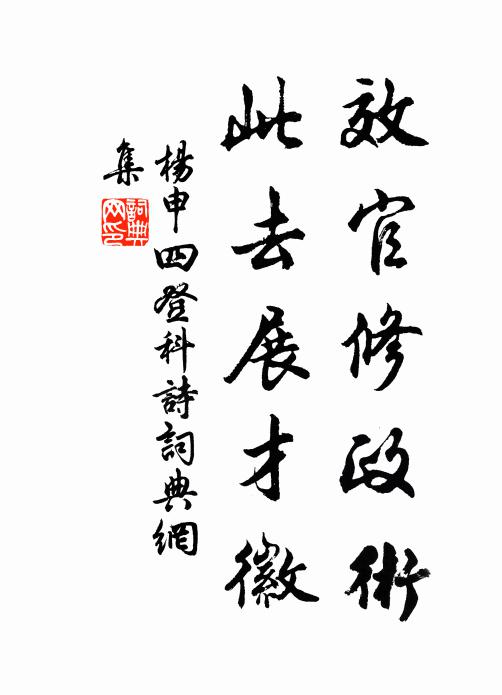 效官修政術
此去展才徽
楊申四登科詩詞典網
集
詞典
网印